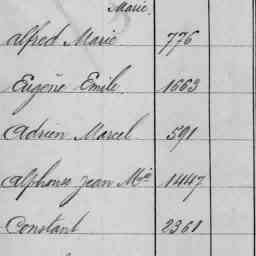 Marie.
Alfred Marie 776
Eugène Emile. 1663
Adrien Marcel 591
Alphonse Jean Mie 1447
Constant 2361